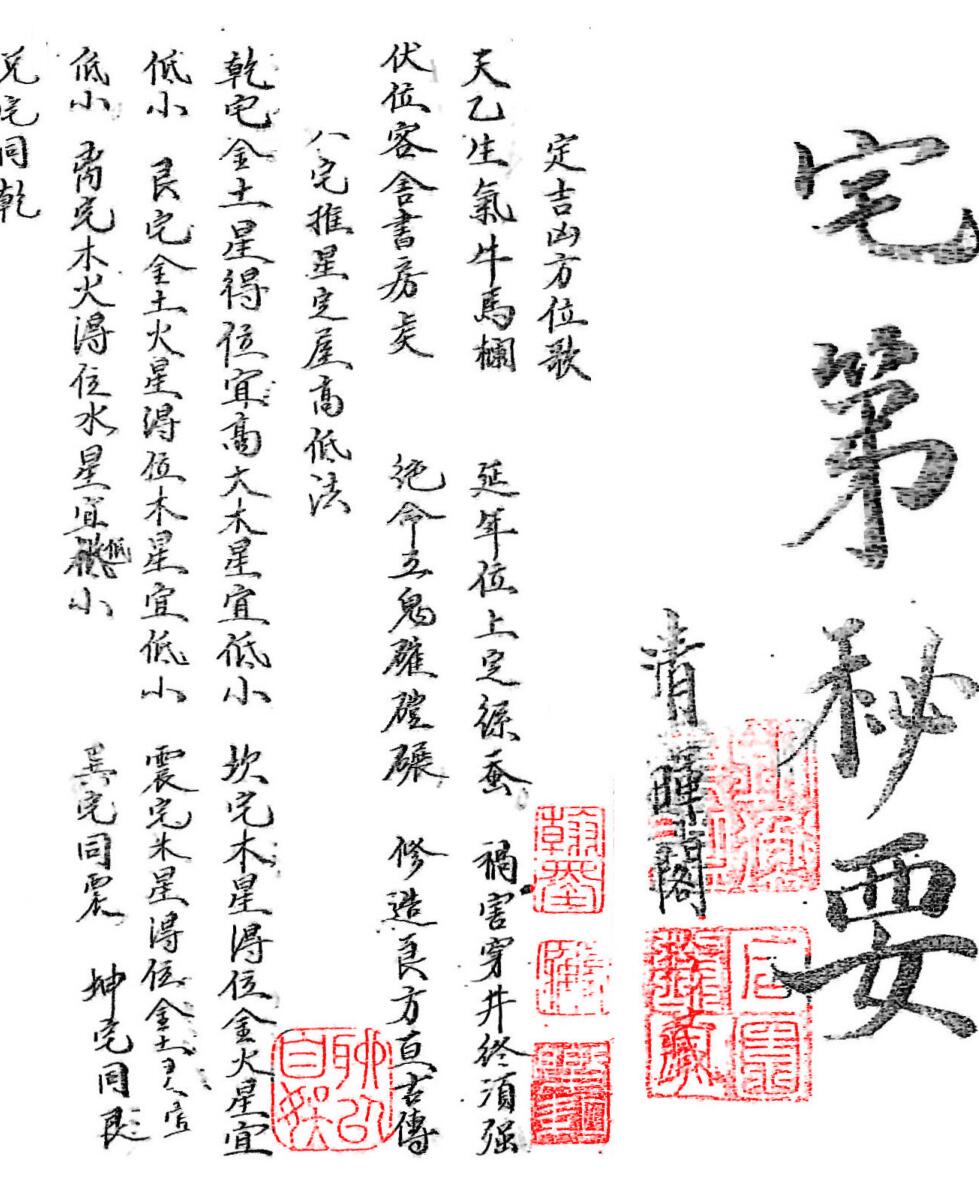 宅第秘要
清暉閣藏
定吉凶方位歌
天乙生氣牛馬欄 延年位上定綵蚕 禍害穿井終須强
伏位客舍書房美 絶命五鬼碓磑碾 修造良方亘古傳
八宅推星定屋高低法
乾宅金土星得位宜高大木星宜低小 坎宅木星得位金火星宜
低小 艮宅金土火星得位木星宜低小 震宅米星得位金土星宜
低小 离宅木火得位水星宜低小 巽宅同震 坤宅同艮
兑宅同乾
翰墨
聊以自娱